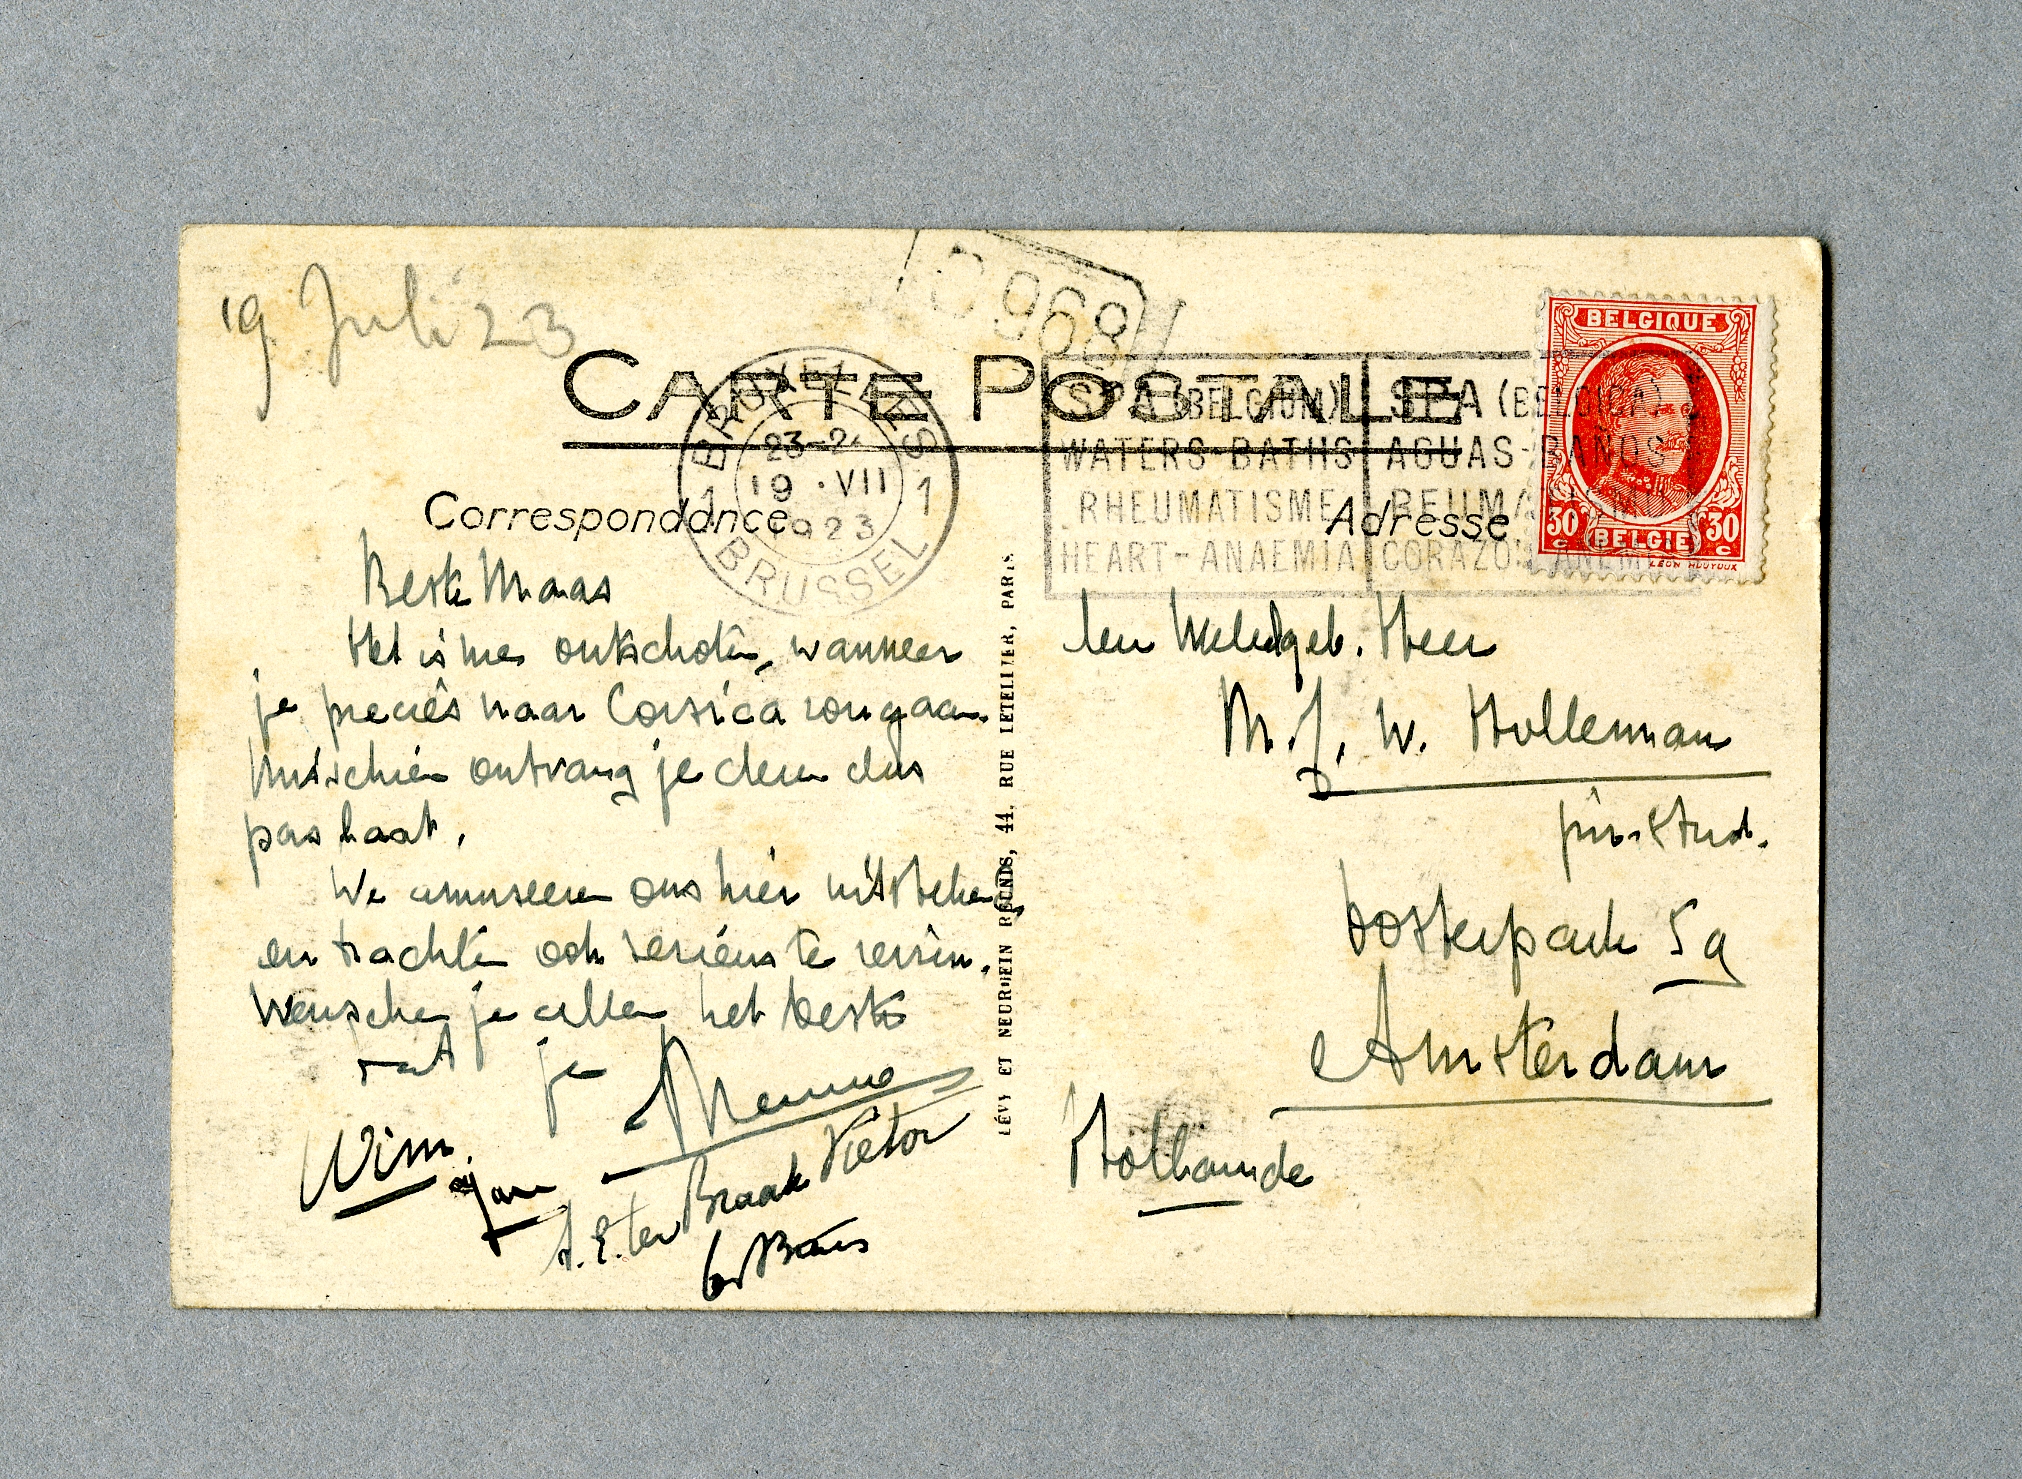 19 Juli 23
C968
CARTE POSTALE
BRUXELLES
23-2
19 · VII
1 1923 1
BRUSSEL
SPA (BELGIUM)
WATERS-BATHS
RHEUMATISME
HEART-ANAEMIA
SPA (BELGICA)
AGUAS-BAÑOS
REUMA
CORAZON ANEM
BELGIQUE
30 c BELGIE 30 c
LÉON HOUYOUX
Correspondance
Adresse
Beste Maas
Het is me ontschoten, wanneer
je precies naar Corsica zou gaan.
Misschien ontvang je deze dus
pas laat.
We amuseeren ons hier uitstekend
en trachten ook serieus te zijn.
Wenschen je allen het beste
je Menno
Wim.
Jan
A. E. ter Braak Victor
LÉVY ET NEURDEIN RÉUNIS, 44, RUE LETELLIER, PARIS
den Weledgeb. Heer
M. J. W. Holleman
jur. stud.
Oosterpark 59
Amsterdam
Hollande